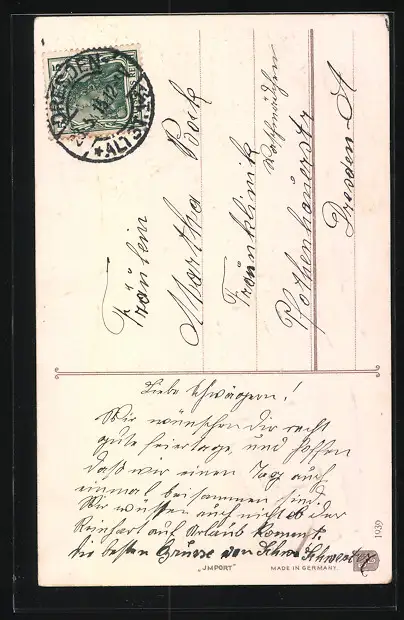 DRESDEN
* ALTST.
Fräulein
Martha Bock
Frauenklinik
Pfothenhauerstr
Dresden-A
Liebe Schwägern!
Wir wünschen dir recht
gute feiertage, und hoffen
daß wir einen Tag auch
einmal beisammen sind.
Wir wussten auch nicht ob der
Reinhart auf Urlaub kommt.
die besten Grüsse von
1939
"JMPORT"
MADE IN GERMANY.